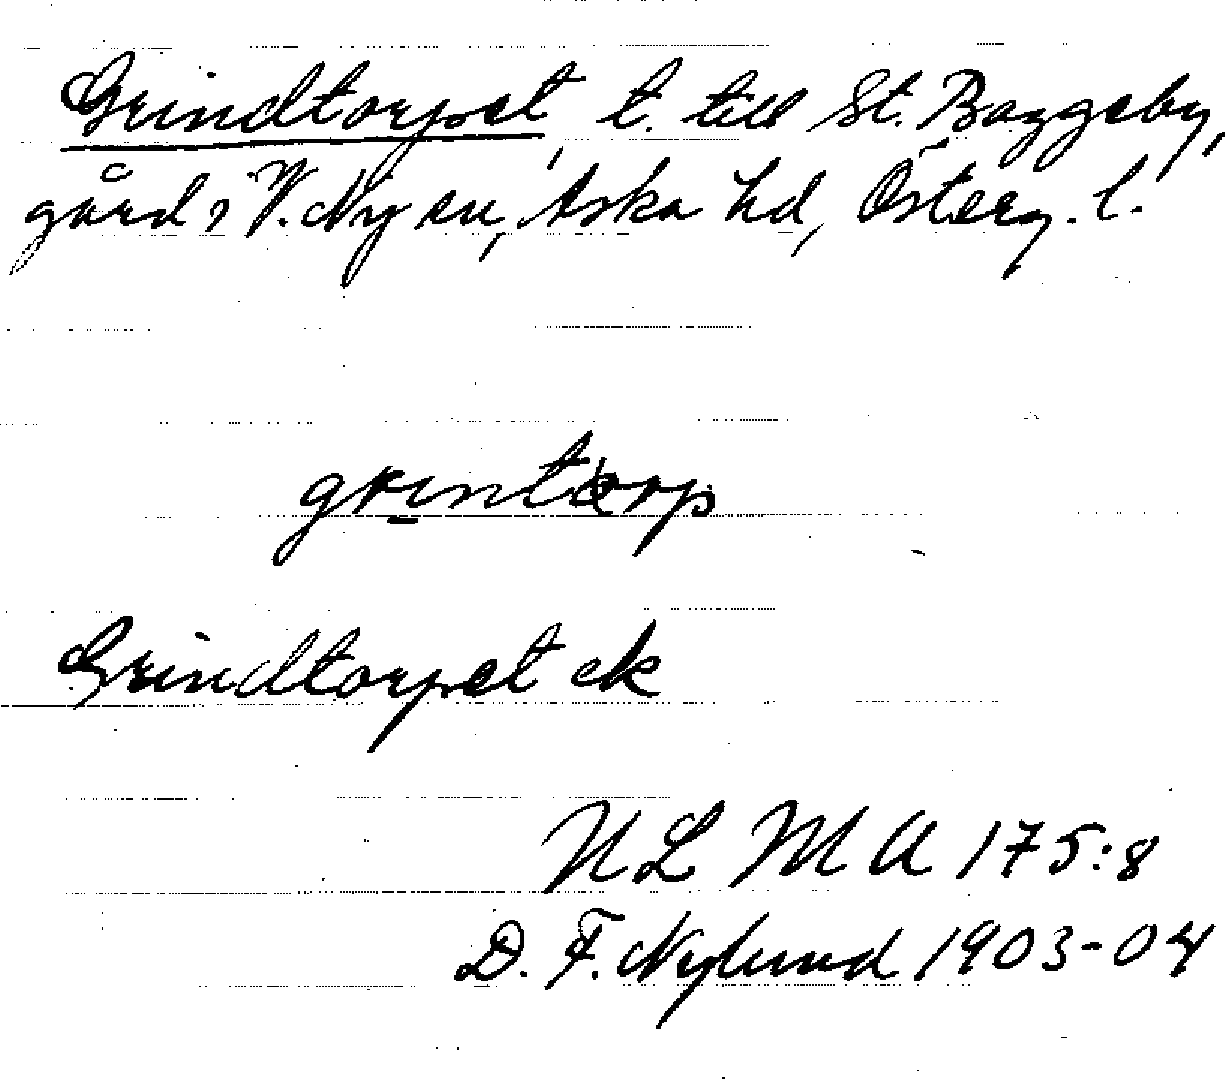 Grindtorpet, t. till St. Baggeby,
gård i V. Ny sn, Aska hd, Österg. l.
grintorp
Grindtorpet ek
ULMA 175:8
D. F. Nylund 1903-04